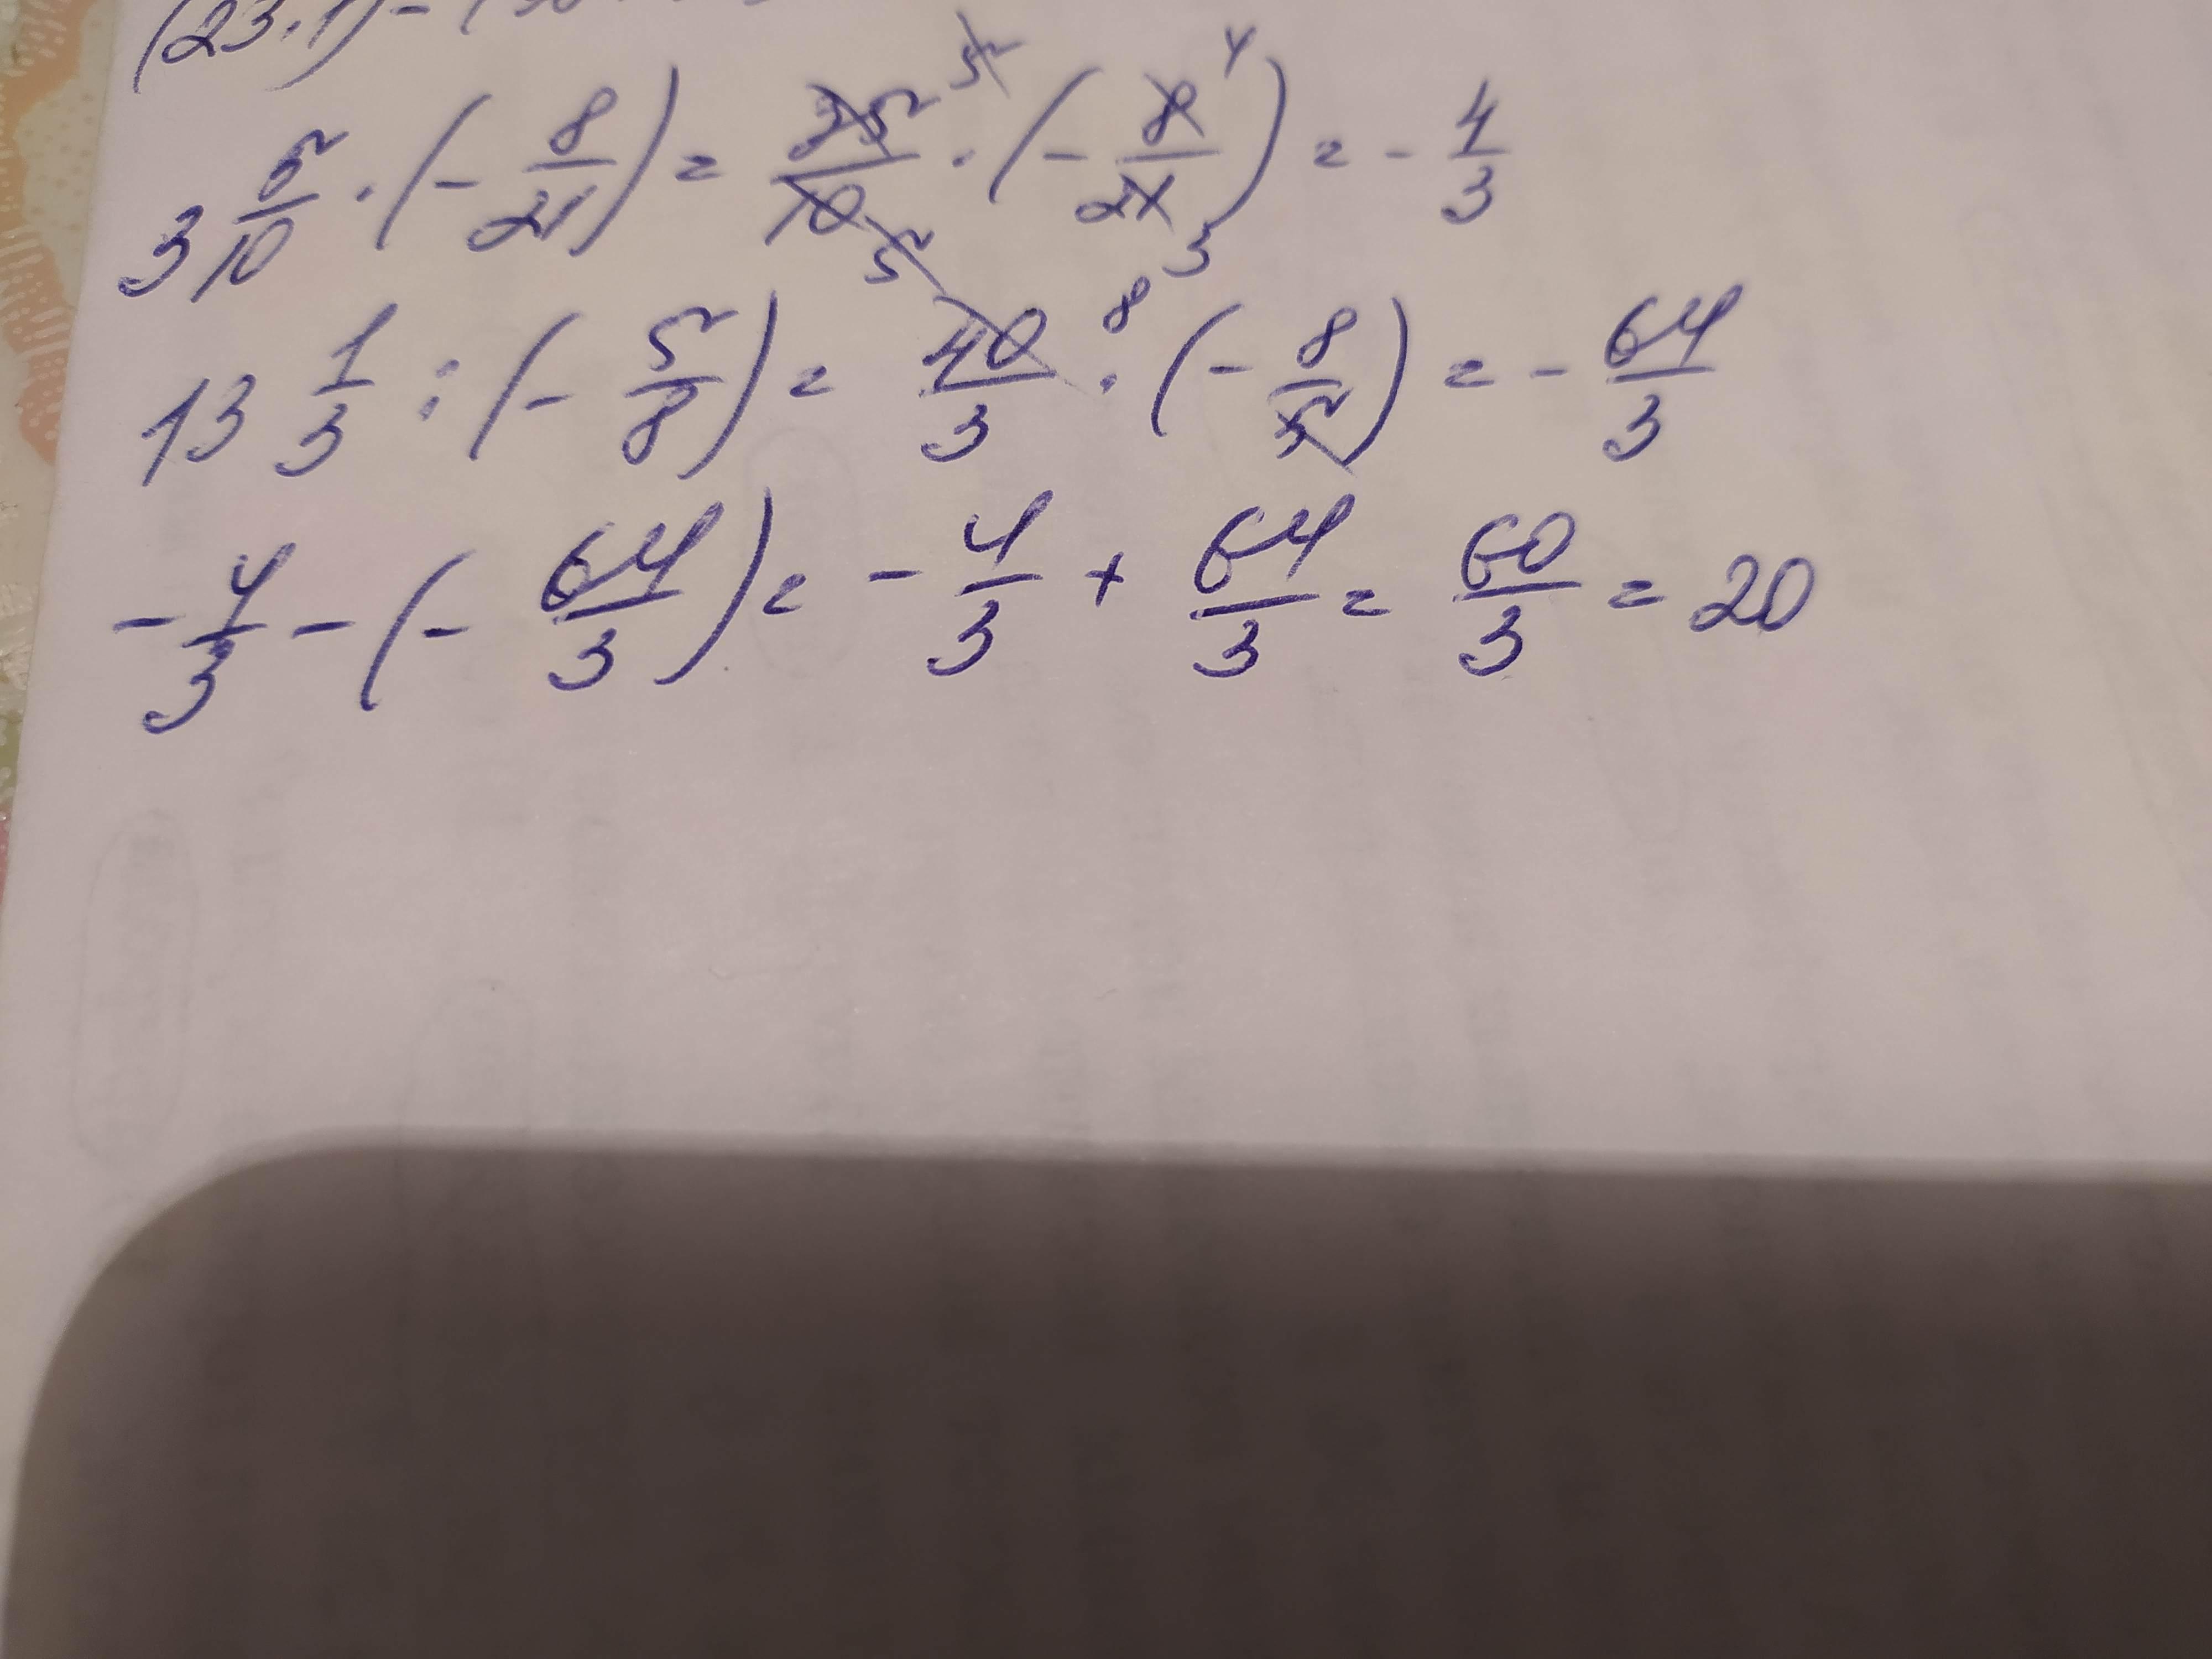 (23.1) - (
3 5/10 · (- 8/21) = 35/10 · (- 8/21) = - 4/3
13 1/3 : (- 5/8) = 40/3 · (- 8/5) = - 64/3
- 4/3 - (- 64/3) = - 4/3 + 64/3 = 60/3 = 20